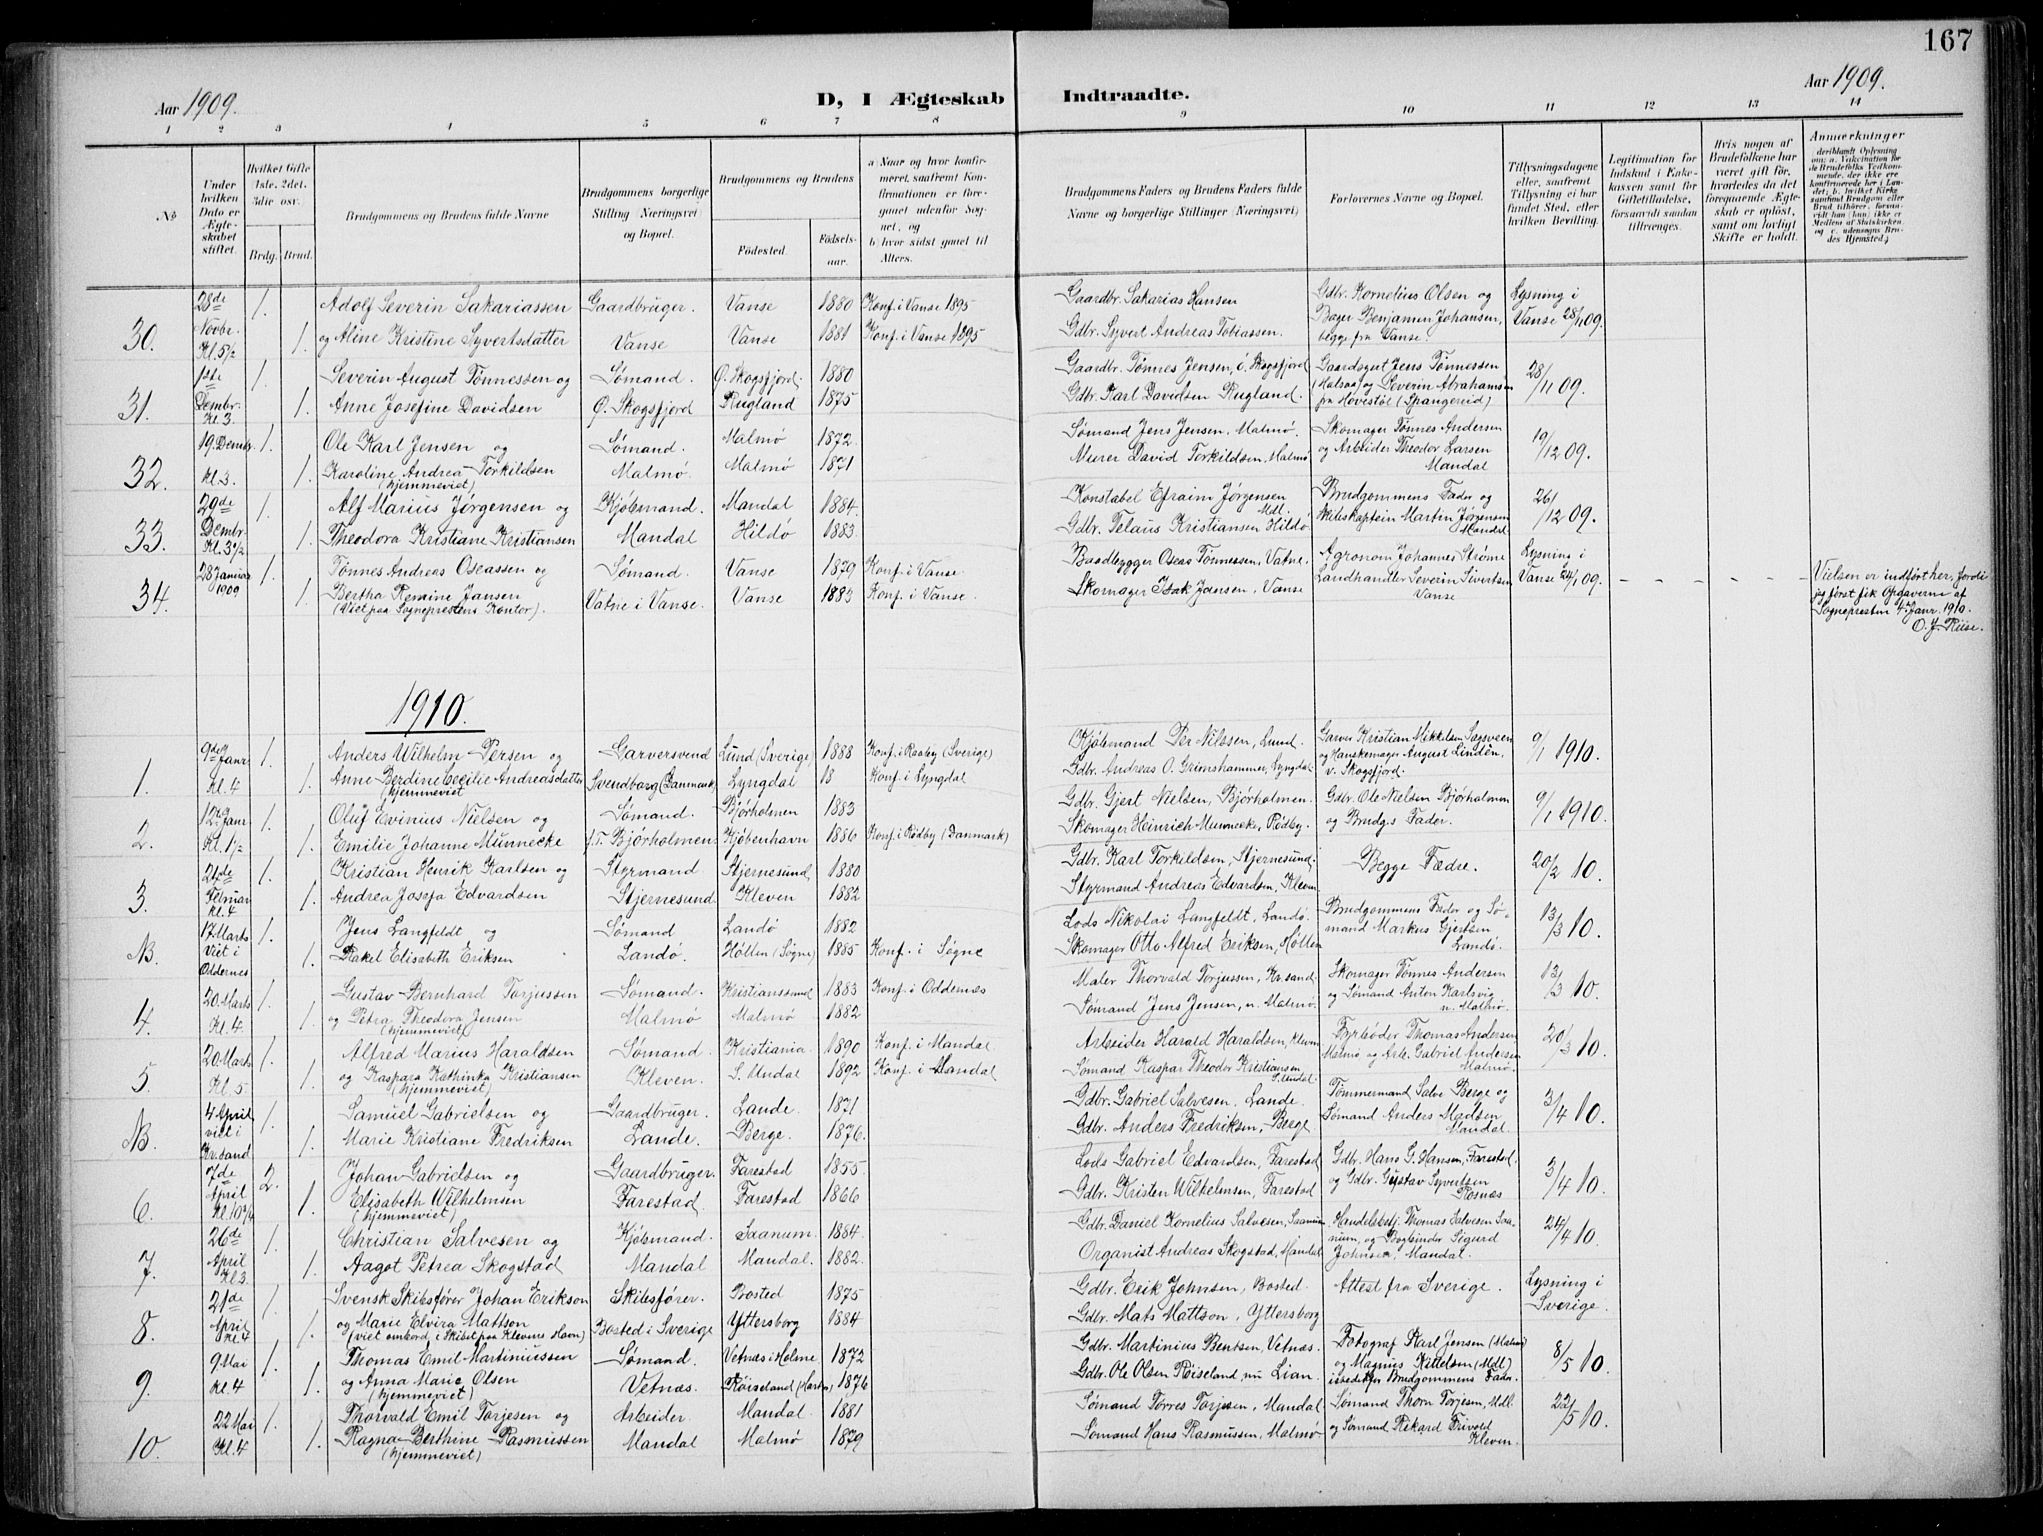 167
Aar 1909.
D, I Ægteskab Indtraadte.
Aar 1909.
1 2 3 4 5 6 7 8 9 10 11 12 13 14
No
Under hvilken Dato er Ægteskabet stiftet.
Hvilket Gifte 1ste, 2det, 3die osv.
Brdg. Brud.
Brudgommens og Brudens fulde Navne
Brudgommens borgerlige Stilling (Næringsvei) og Bopæl.
Brudgommens og Brudens
Fødested. Fødselsaar.
a) Naar og hvor konfirmeret, saafremt Konfirmationen er foregaaet udenfor Sognet, og
b) hvor sidst gaaet til Alters.
Brudgommens Faders og Brudens Faders fulde Navne og borgerlige Stillinger (Næringsvei)
Forlovernes Navne og Bopæl.
Tillysningsdagene eller, saafremt Tillysning ei har fundet Sted, efter hvilken Bevilling.
Legitimation for Indskud i Enkekassen samt for Giftetilladelse, forsaavidt saadan tiltrænges.
Hvis nogen af Brudefolkene har været gift før, hvorledes da det foregaaende Ægteskab er opløst, samt om lovligt Skifte er holdt.
Anmerkninger
30. 28de Novbr. Kl. 5½ 1. 1. Adolf Severin Sakariassen og Aline Kristine Syvertsdatter Gaardbruger. Vanse Vanse 1880 Vanse 1881 Konf. i Vanse 1895 Konf. i Vanse 1895 Gaardbr. Sakarias Hansen Gdbr. Syvert Andreas Tobiassen. Gdbr. Kornelius Olsen og Bager Benjamin Johansen, begge fra Vanse. Lysning i Vanse 28/11 09.
31. 1ste Dembr. Kl. 3 1. 1. Severin August Tønnessen og Anne Josefine Davidsen Sømand. Ø. Skogsfjord Ø. Skogsfjord 1880 Rugland 1875 Gaardbr. Tønnes Jensen, Ø. Skogsfjord Gdbr. Karl Davidsen Rugland. Gaardsgut Jens Tønnessen (Halsaa) og Severin Abrahamsen fra Hovestøl (Spangereid) 28/11 09.
32. 19. Dembr. Kl. 3. 1. 1. Ole Karl Jensen og Karoline Andrea Torkildsen (hjemmeviet) Sømand. Malmø. Malmø 1872. Malmø 1871 Sømand Jens Jensen, Malmø. Murer David Torkildsen, Malmø Skomager Tønnes Andersen og Arbeider Theodor Larsen Mandal 19/12 09.
33. 29de Dembr Kl. 3½ 1. 1. Alf Marius Jørgensen og Theodora Kristiane Kristiansen Kjøbmand. Mandal Mandal 1884. Hildø 1883. Konstabel Efraim Jørgensen Mdl. Gdbr. Telaus Kristiansen Hildø. Brudgommens Fader og Skibskaptein Martin Jørgensen Mandal 26/12 09.
34. 28 Januar 1909 1. 1. Tønnes Andreas Oseassen og Bertha Regine Jansen (Viet paa Sogneprestens Kontor). Sømand. Vatne i Vanse. Vanse 1879 Vanse 1883 Konf. i Vanse. Konf. i Vanse. Baadbygger Oseas Tønnessen, Vatne. Skomager Isak Jansen, Vanse Agronom Johannes Strømme Landhandler Severin Sivertsen Vanse Lysning i Vanse 24/1 09. Vielsen er indført her, fordi jeg først fik Opgaverne af Sognepresten 4 Janr. 1910. O. J. Riise.
1910.
1. 9de Janr Kl. 4 1. 1. Anders Wilhelm Persen og Anne Berdine Cecilie Andreasdatter hjemmeviet Garversvend Svendborg (Danmark) Lund (Sverige) 1888 Lyngdal 18 Konf. i Raaby (Sverige) Konf. i Lyngdal Kjøbmand Per Nilssen, Lund. Gdbr. Andreas O. Grimshammer, Lyngdal Garver Kristian Mikkelsen Sagsveen og Hanskemager August Lindén, v. Skogsfjord. 9/1 1910.
2. 12. Janr Kl. 1½ 1. 1. Oluf Evinius Nielsen og Emilie Johanne Munnecke Sømand. f.T. Bjørholmen Bjørholmen 1883 Kjøbenhavn 1886 Konf. i Rødby (Danmark) Gdbr. Gjert Nielsen, Bjørholmen. Skomager Heinrich Munnecke, Rødby. Gdbr. Ole Nielsen Bjørholmen og Brudgs Fader. 9/1 1910.
3. 21de Februar Kl. 4 1. 1. Kristian Henrik Karlsen og Andrea Josefa Edvardsen Styrmand Stjernesund. Stjernesund 1880 Kleven 1882 Gdbr. Karl Torkildsen, Stjernesund. Styrmand Andreas Edvardsen, Kleven Begge Fædre. 20/2 10.
NB. 17 Marts Viet i Oddernes 1. 1. Jens Langfeldt og Rakel Elisabeth Eriksen Sømand Landø. Landø 1882 Höllen (Søgne) 1885 Konf. i Søgne Lods Nikolai Langfeldt, Landø. Skomager Otto Alfred Eriksen, Höllen Brudgommens Fader og Sømand Markus Gjertsen Landø. 13/3 10.
4. 20. Marts Kl. 4 1. 1. Gustav Bernhard Torjussen og Petra Theodora Jensen (hjemmeviet) Sømand. Malmø Kristianssand 1883 Malmø 1882 Konf. i Oddernes Maler Thorvald Torjussen, Kr.sand Sømand Jens Jensen, n. Malmø. Skomager Tønnes Andersen og Sømand Anton Karlsvig n. Malmø. 13/3 10.
5. 20. Marts Kl. 5 1. 1. Alfred Marius Haraldsen og Kaspara Kathinka Kristiansen (hjemmeviet) Sømand. Kleven. Kristiania 1890 S. Undal 1892 Konf. i Mandal Konf. i Mandal Arbeider Harald Haraldsen, Kleven Sømand Kaspar Theodor Kristiansen S. Undal. Fyrbøder Thomas Andersen Malmø og Arb. Gabriel Andersen Malmø. 20/3 10.
NB. 4 April viet i Kr.sand 1. 1. Samuel Gabrielsen og Marie Kristiane Fredriksen Gaardbruger. Lande. Lande. 1871 Berge. 1876. Gdbr. Gabriel Salvesen. Lande. Gdbr. Anders Fredriksen, Berge Tømmermand Salve Berge og Sømand Anders Madsen Mandal 3/4 10.
6. 7de April Kl. 10¾ 2. 1. Johan Gabrielsen og Elisabeth Wilhelmsen (hjemmeviet) Gaardbruger. Farestad. Farestad 1855. Farestad 1866 Lods Gabriel Edvardsen, Farestad Gdbr. Kristen Wilhelmsen, Farestad Gdbr. Hans G. Hansen, Farestad. og Gdbr. Gustav Syvertsen Rosnæs 3/4 10.
7. 26de April Kl. 3. 1. 1. Christian Salvesen og Aagot Petrea Skogstad Kjøbmand. Mandal Saanum. 1884. Mandal. 1882. Gdbr. Daniel Kornelius Salvesen, Saanum Organist Andreas Skogstad, Mandal Handelsbetj. Thomas Salvesen Saanum, og Bogbinder Sigurd Johnsen, Mandal. 24/4 10.
8. 21de April Kl. 4 1. 1. Svensk Skibsfører Johan Erikson og Marie Elvira Mattson (viet ombord i Skibet paa Klevens Havn) Skibsfører. Bosted i Sverige Bosted 1875 Yttersborg 1884 Gdbr. Erik Johnsen, Bosted. Gdbr. Mats Mattson, Yttersborg Attest fra Sverige. Lysning i Sverige.
9. 9 Mai Kl. 4 1. 1. Thomas Emil Martiniussen og Anna Marie Olsen (hjemmeviet) Sømand. Vetnæs. Vetnæs i Holme 1872 Röiseland (Hartm) 1876 Gdbr. Martinius Bentsen, Vetnæs. Gdbr. Ole Olsen Röiseland nu Lian. Fotograf Karl Jensen (Malmø) og Magnus Kittelsen (Mdl) istedetfor Brudgommens Fader. 8/5 10.
10. 22 Mai Kl. 4 1. 1. Thorvald Emil Torjesen og Ragna Berthine Rasmussen (hjemmeviet) Arbeider Mandal Mandal. 1881 Malmø 1879 Sømand Torres Torjesen, Mandal Sømand Hans Rasmussen, Malmø Sømand Thorn Torjesen, Mdl. og Sømand Rikard Frivold Kleven. 22/5 10.